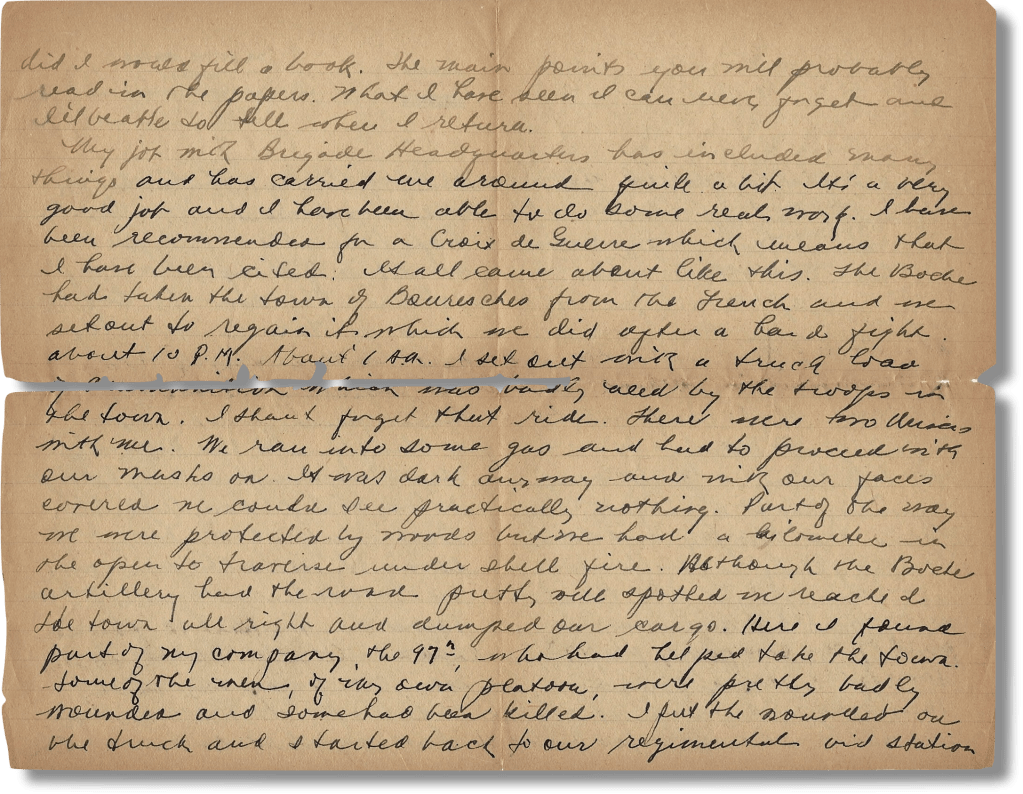 did I would fill a book. The main points you will probably
read in the papers. What I have seen I can never forget and
I'll be able to tell when I return.
My job with Brigade Headquarters has included many
things and has carried me around quite a bit. It's a very
good job and I have been able to do some real work. I have
been recommended for a Croix de Guerre which means that
I have been cited. It all came about like this. The Boche
had taken the town of Bouresches from the French and we
set out to regain it which we did after a hard fight
about 10 P.M. About 1 A.M. I set out with a truck load
of ammunition which was badly need by the troops in
the town. I shant forget that ride. There were two
with me. We ran into some gas and had to proceed with
our masks on. It was dark anyway and with our faces
covered we could see practically nothing. Part of the way
we were protected by woods but we had a kilometer in
the open to traverse under shell fire. Although the Boche
artillery had the road pretty well spotted we reached
the town all right and dumped our cargo. Here I found
part of my company, the 97th, who had helped take the town.
Some of the men, of my own platoon, were pretty badly
wounded and some had been killed. I put the wounded on
the truck and started back to our regimental aid station